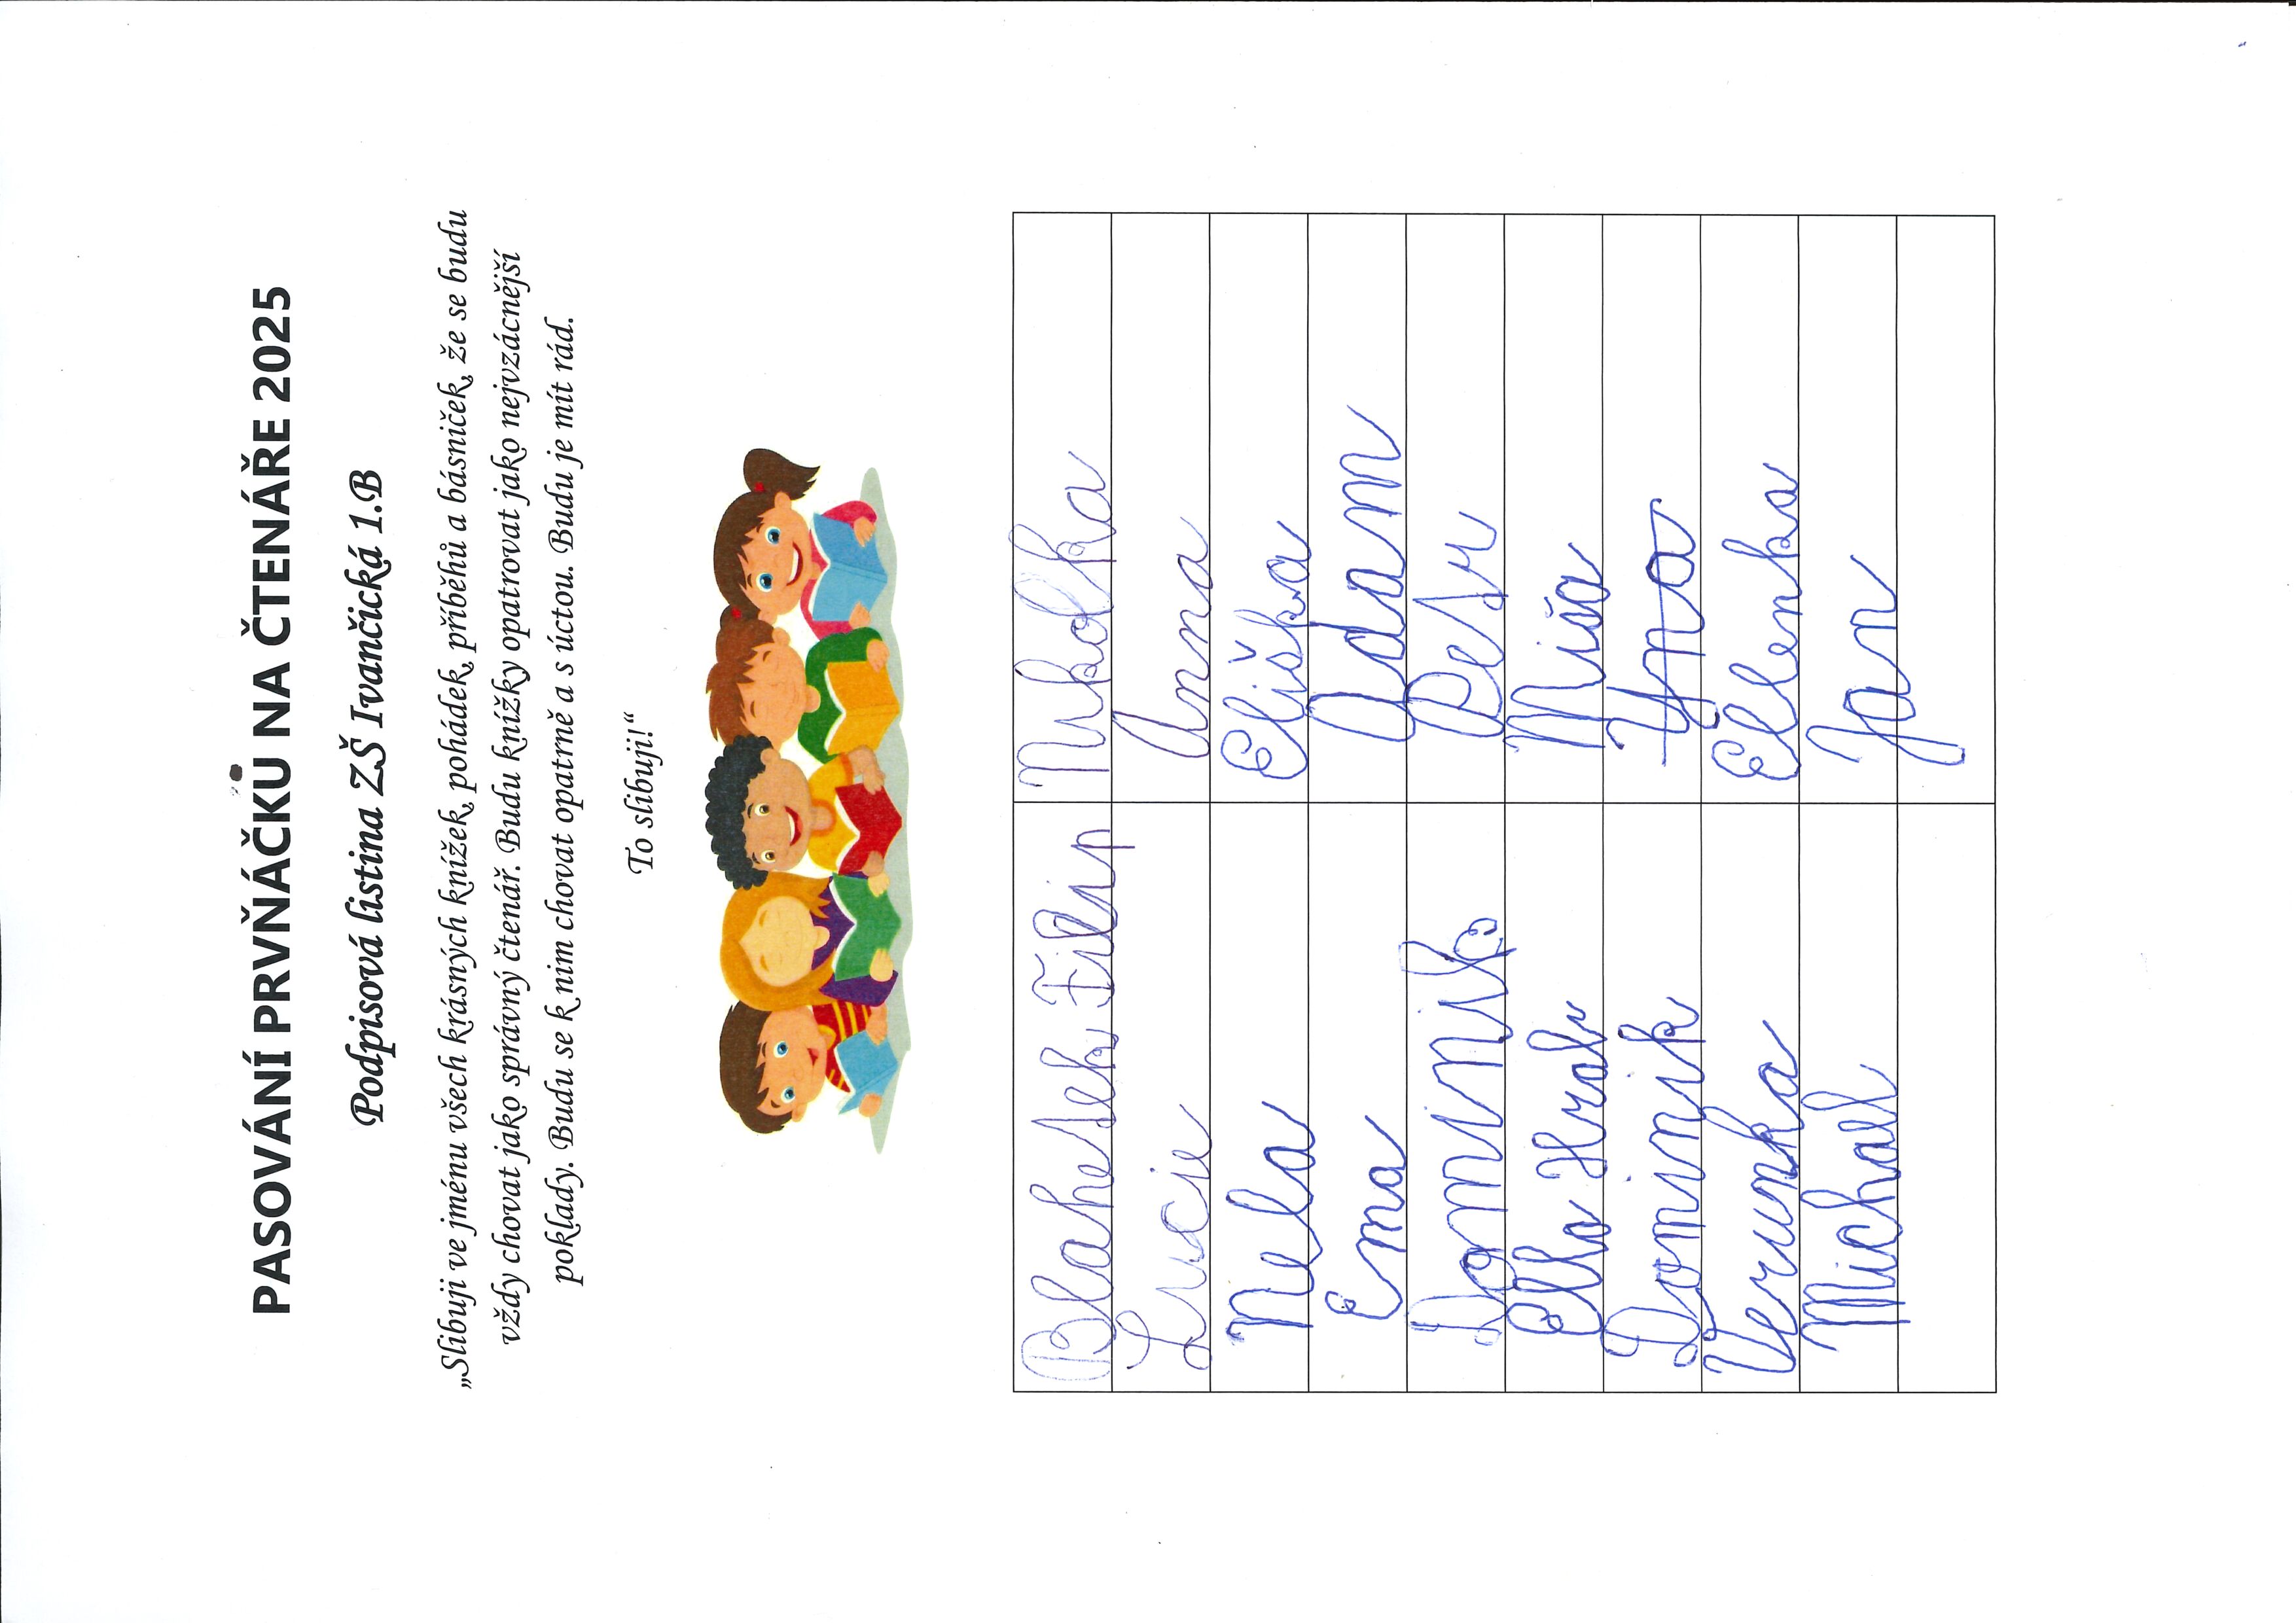 PASOVÁNÍ PRVŇÁČKŮ NA ČTENÁŘE 2025
Podpisová listina ZŠ Ivančická 1.B
„Slibuji ve jménu všech krásných knížek, pohádek, příběhů a básniček, že se budu
vždy chovat jako správný čtenář. Budu knížky opatrovat jako nejvzácnější
poklady. Budu se k nim chovat opatrně a s úctou. Budu je mít rád.
To slibuji!“
Blahesek Filip Nikolka
Lucie Anna
Nela Eliška
Ema Adam
Dominik
Ella Míša
Dominik
Verunka Ellenka
Michall Jan